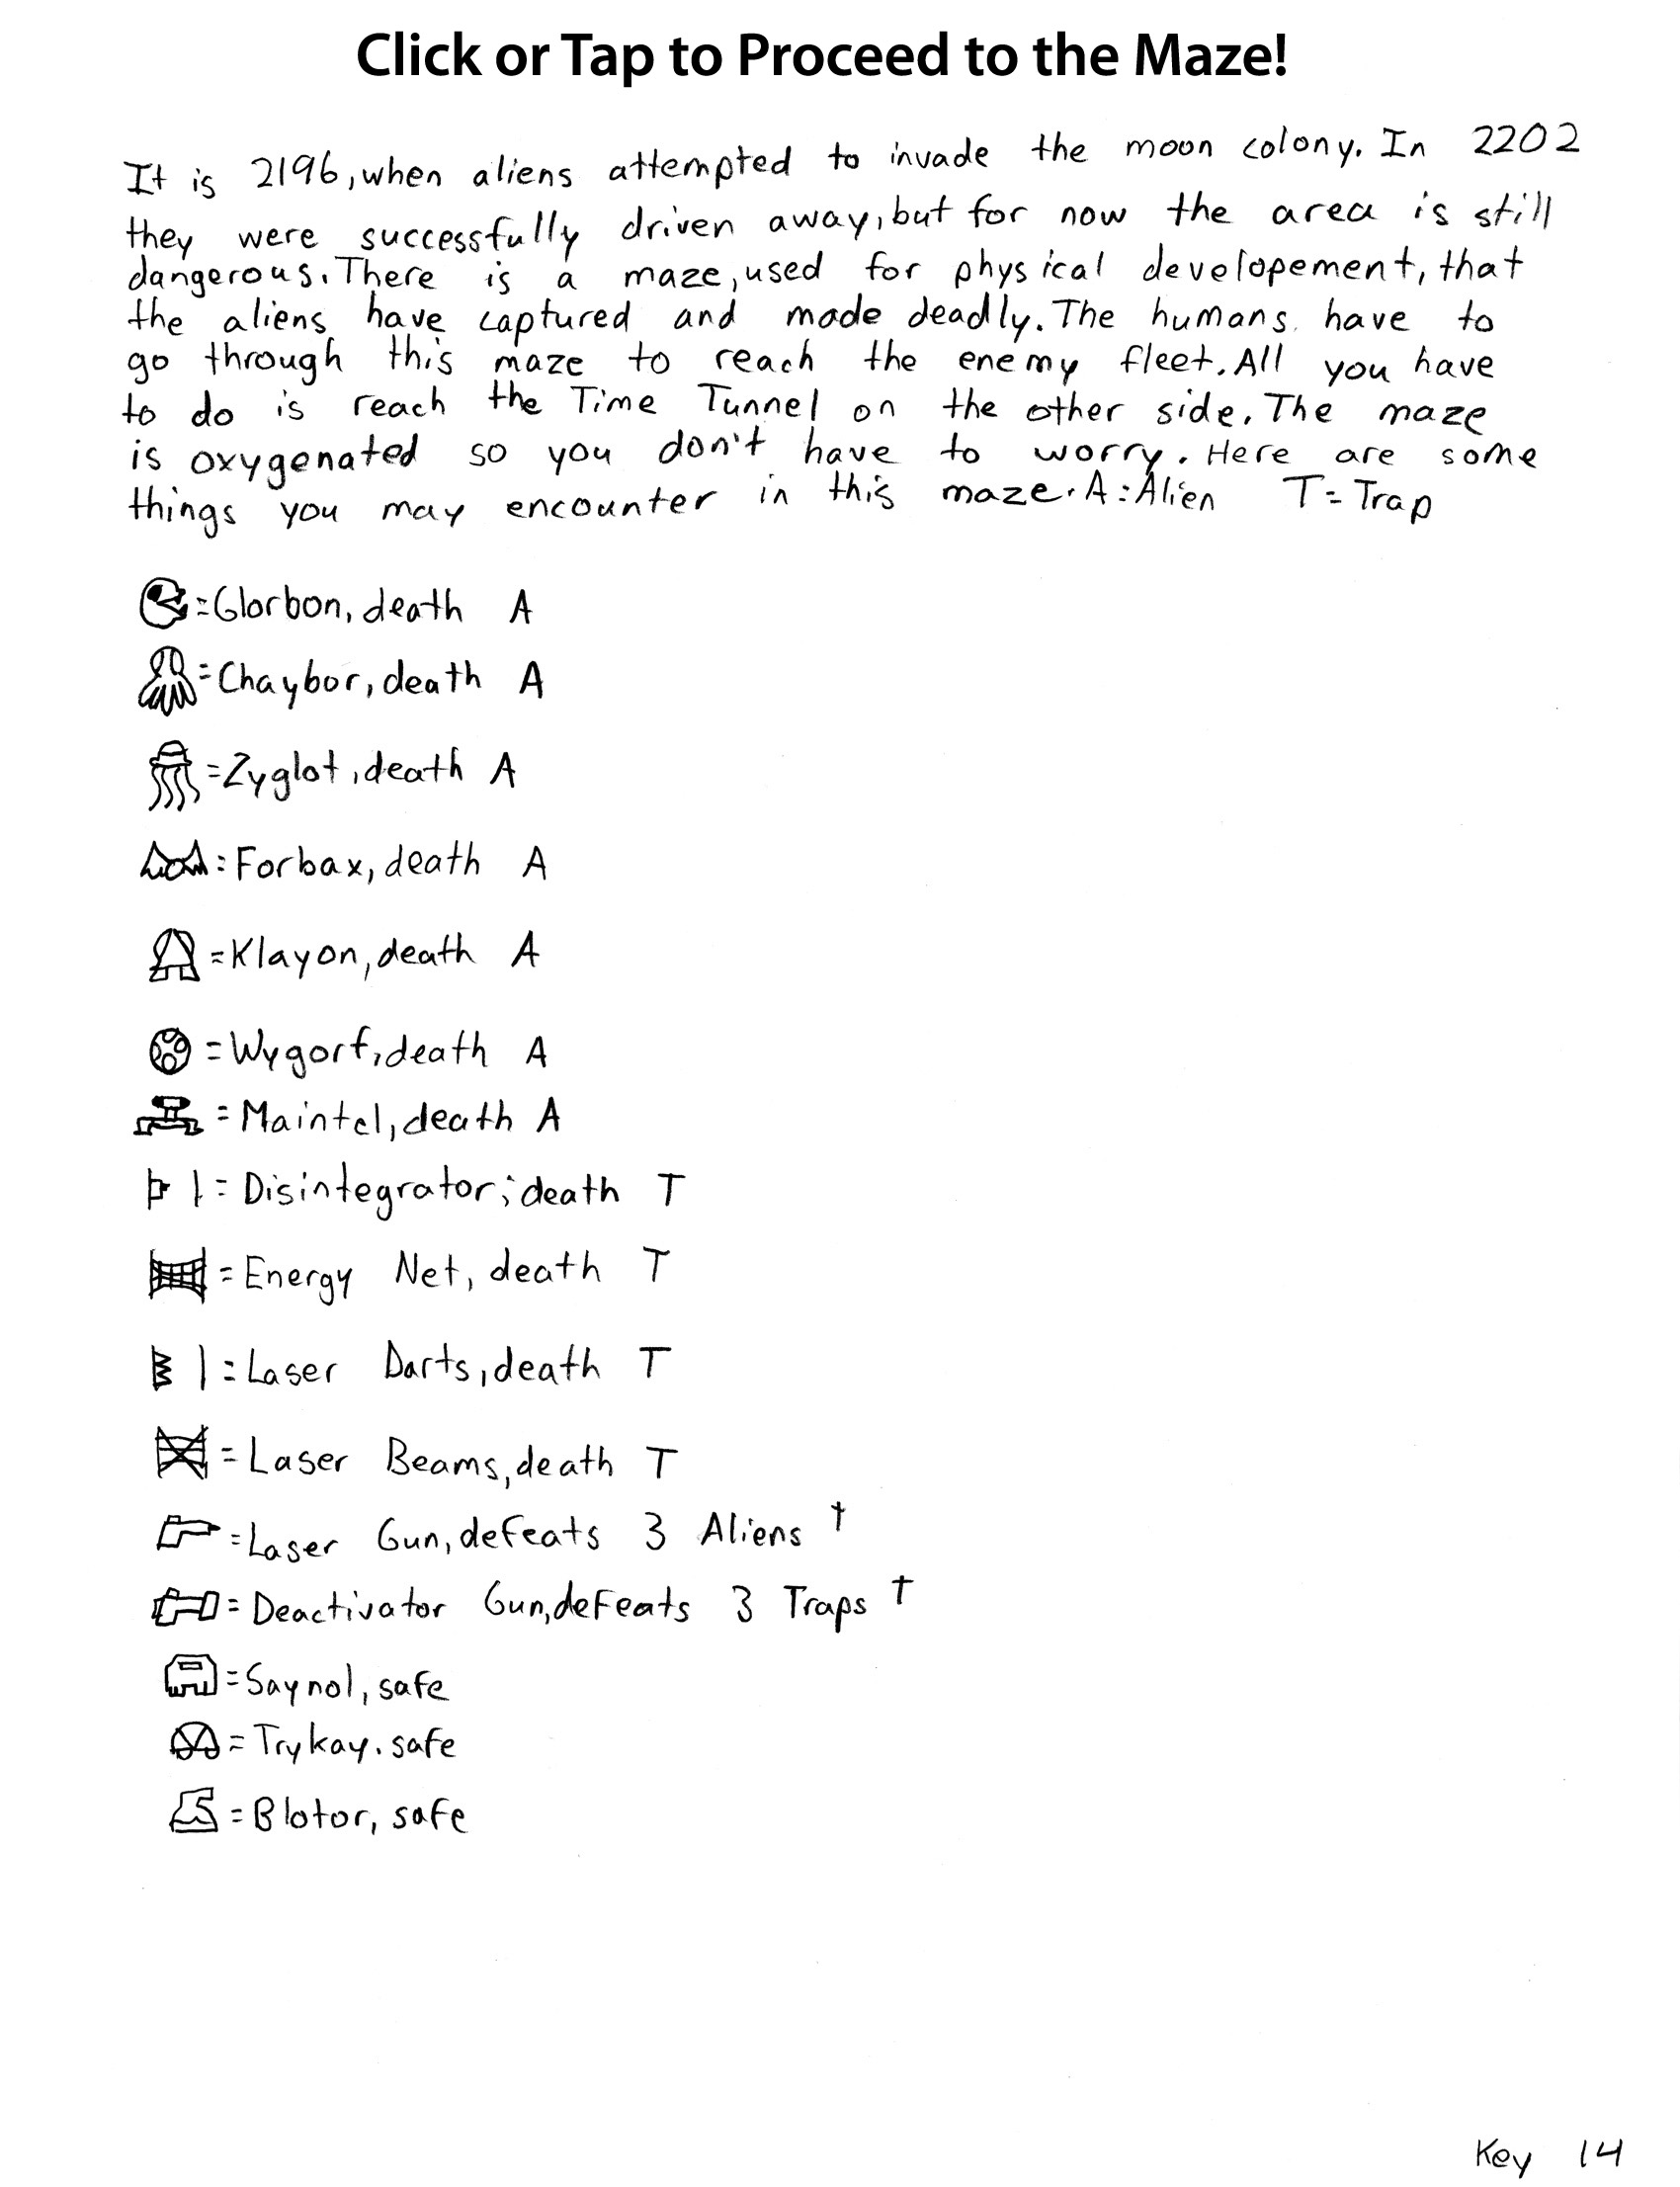 Click or Tap to Proceed to the Maze!
It is 2196, when aliens attempted to invade the moon colony. In 2202
they were successfully driven away, but for now the area is still
dangerous. There is a maze, used for physical developement, that
the aliens have captured and made deadly. The humans have to
go through this maze to reach the enemy fleet. All you have
to do is reach the Time Tunnel on the other side. The maze
is oxygenated so you don't have to worry. Here are some
things you may encounter in this maze. A:Alien T=Trap
=Glorbon, death A
=Chaybor, death A
=Zyglot, death A
=Forbax, death A
=Klayon, death A
=Wygorf, death A
=Maintel, death A
=Disintegrator; death T
=Energy Net, death T
=Laser Darts, death T
=Laser Beams, death T
=Laser Gun, defeats 3 Aliens †
=Deactivator Gun, defeats 3 Traps †
=Saynol, safe
=Trykay. safe
=Blotor, safe
Key 14